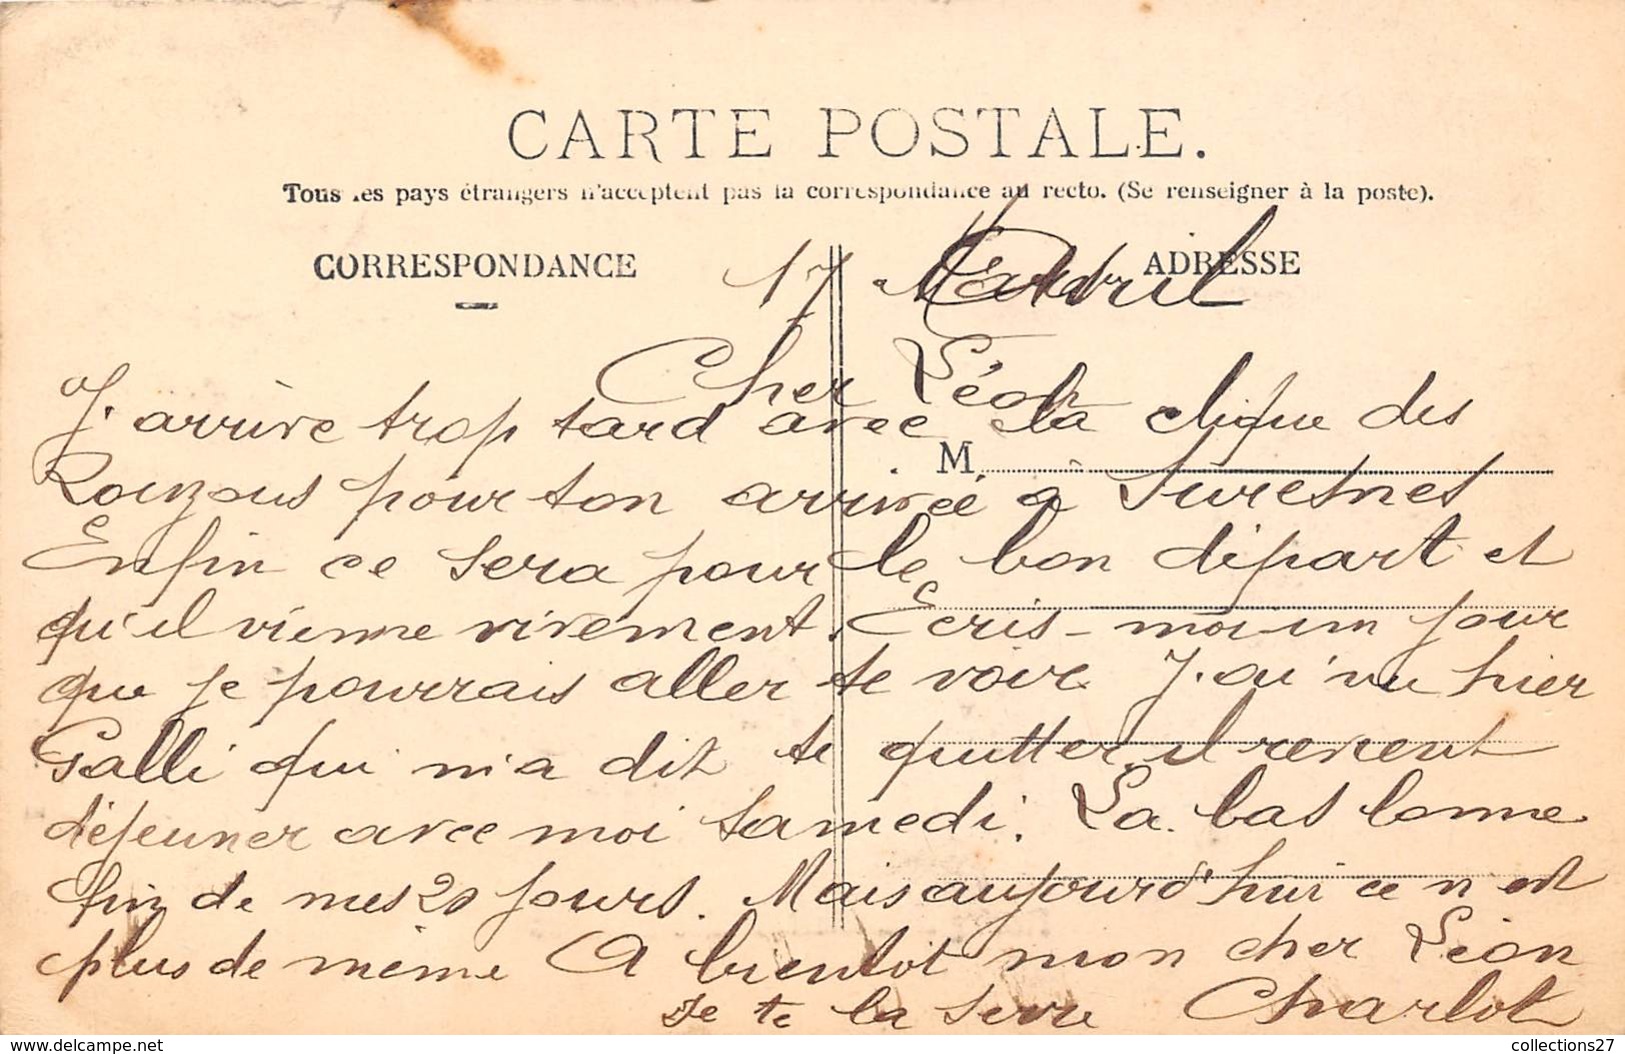 CARTE POSTALE.
Tous les pays étrangers n'acceptent pas la correspondance au recto. (Se renseigner à la poste).
CORRESPONDANCE
ADRESSE
17 Avril
Cher Léon
J'arrive trop tard avec la clique des
M
pour ton arrivée à Suresnes
Enfin ce sera pour le bon départ et
qu'il vienne vivement. Ecris-moi un jour
que je pourrais aller te voir. J'ai vu hier
Galli qui m'a dit te quitter il revient
déjeuner avec moi samedi. La bas bonne
fin de mes 20 jours. Mais aujourd'hui ce n'est
plus de même A bientot mon cher Léon
Je te la serre Charlot
collections27